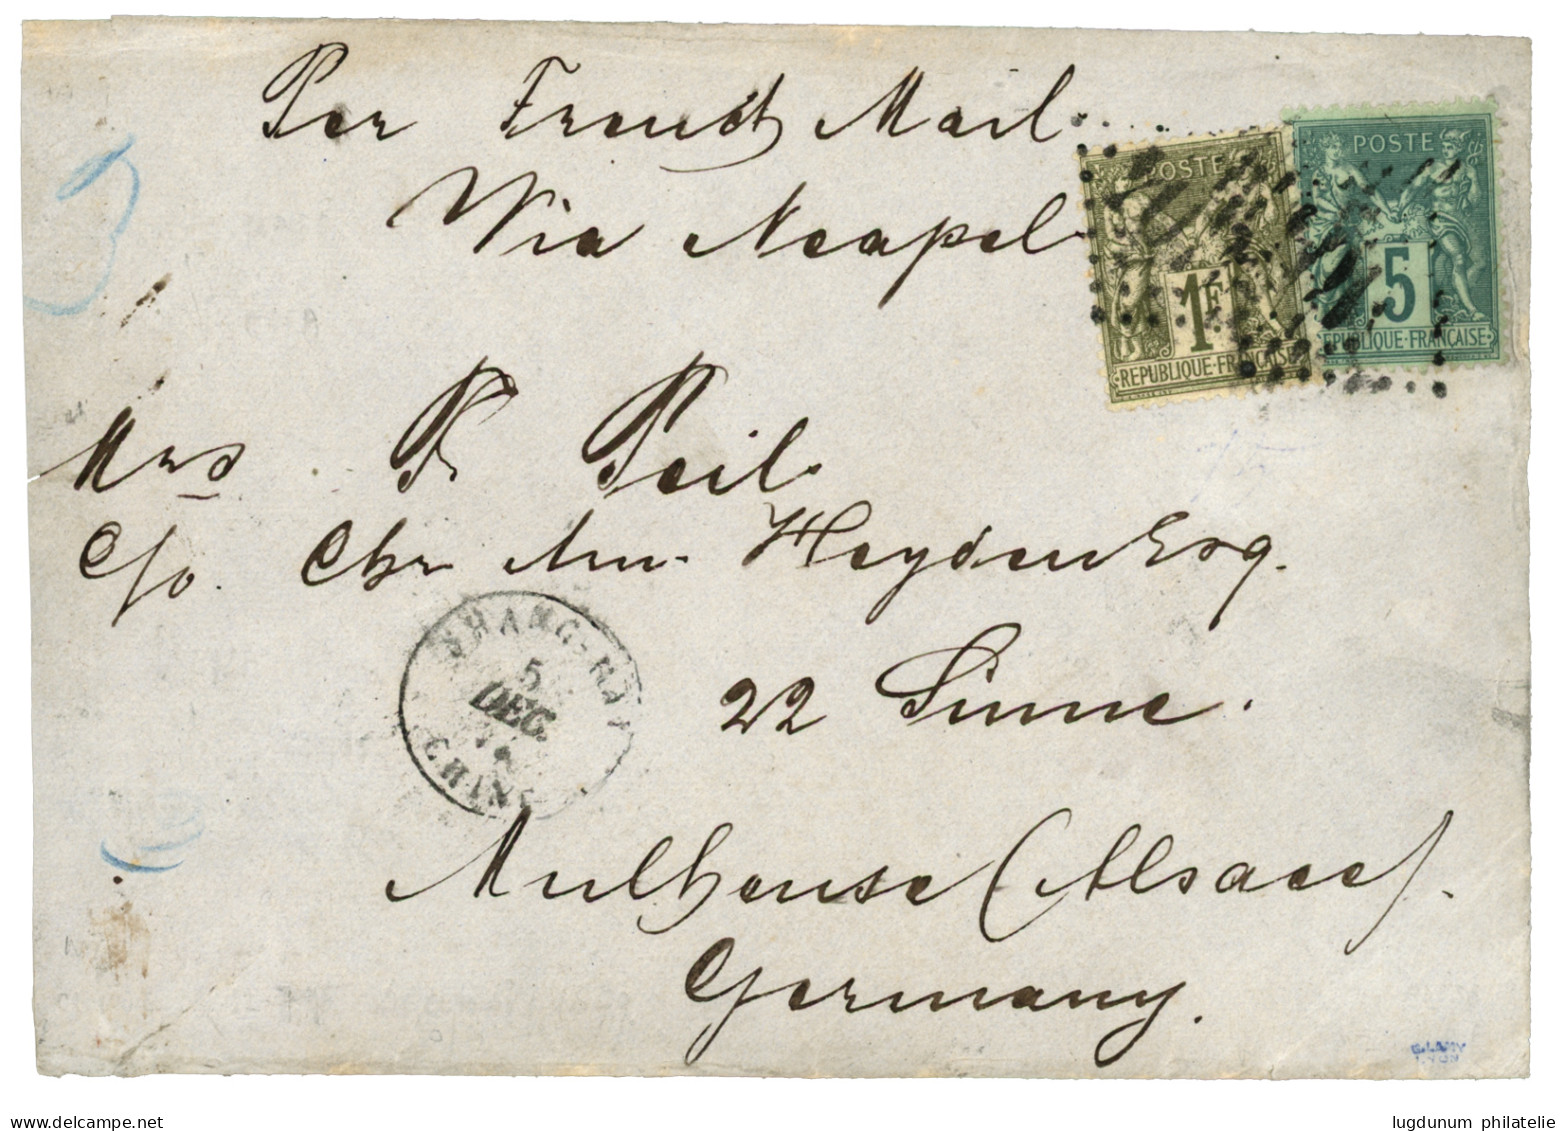 Per French Mail
Via Neapel
POSTE
1F
REPUBLIQUE·FRANÇAISE
POSTE
5
REPUBLIQUE·FRANÇAISE
Mrs P. Peil
c/o. Chr. Heyden Esq.
22 Sinne.
SHANG-HAÏ
5
DEC.
CHINE
Mulhouse (Alsace).
Germany.
lugdunum philatelie